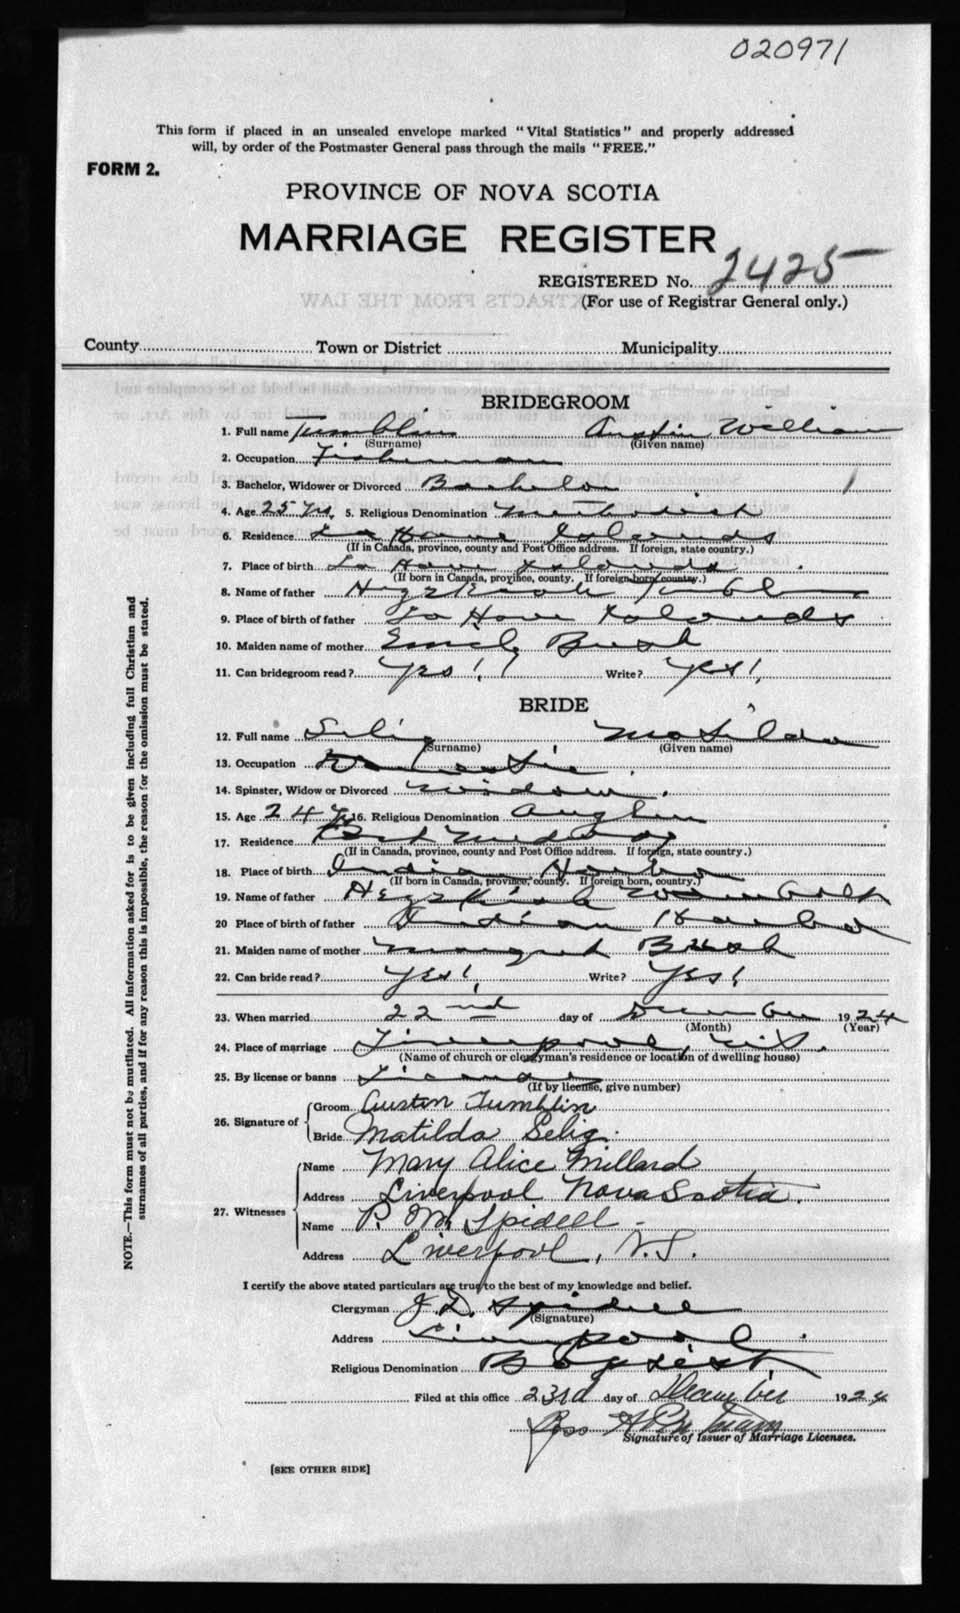 020971
This form if placed in an unsealed envelope marked "Vital Statistics" and properly addressed
will, by order of the Postmaster General pass through the mails "FREE."
FORM 2.
PROVINCE OF NOVA SCOTIA
MARRIAGE REGISTER
REGISTERED No. 2425
(For use of Registrar General only.)
County Town or District Municipality
BRIDEGROOM
1. Full name Tumblin Austin William
(Surname) (Given name)
2. Occupation Fisherman
3. Bachelor, Widower or Divorced Bachelor
4. Age 25 Yrs. 5. Religious Denomination Methodist
6. Residence La Have Islands
(If in Canada, province, county and Post Office address. If foreign, state country.)
7. Place of birth La Have Islands
(If born in Canada, province, county. If foreign born, country.)
8. Name of father Hezekiah Tumblin
9. Place of birth of father La Have Islands
10. Maiden name of mother Emily Bush
11. Can bridegroom read? Yes! Write? Yes!
BRIDE
12. Full name Selig Matilda
(Surname) (Given name)
13. Occupation Domestic
14. Spinster, Widow or Divorced Widow.
15. Age 24 Yrs 16. Religious Denomination Anglican
17. Residence Port Medway
(If in Canada, province, county and Post Office address. If foreign, state country.)
18. Place of birth Indian Harbor
(If born in Canada, province, county. If foreign born, country.)
19. Name of father Hezekiah
20 Place of birth of father Indian Harbor
21. Maiden name of mother Margret Bush
22. Can bride read? Yes! Write? Yes!
23. When married 22nd day of December 1924
(Month) (Year)
24. Place of marriage Liverpool, N.S.
(Name of church or clergyman's residence or location of dwelling house)
25. By license or banns License
(If by license, give number)
26. Signature of Groom Austin Tumblin
Bride Matilda Selig.
27. Witnesses Name Mary Alice Millard
Address Liverpool Nova Scotia.
Name P. M. Spidell
Address Liverpool, N.S.
I certify the above stated particulars are true to the best of my knowledge and belief.
Clergyman J. D. Spidell
(Signature)
Address Liverpool.
Religious Denomination Baptist
Filed at this office 23rd day of December 1924
Signature of Issuer of Marriage Licenses.
[SEE OTHER SIDE]
NOTE.—This form must not be mutilated. All information asked for is to be given including full Christian and
surnames of all parties, and if for any reason this is impossible, the reason for the omission must be stated.